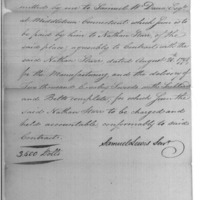 mitted by me to Samuel W. Dana Esqr.
at Middletown Connecticut which sum is to
be paid by him to Nathan Starr of the
said place, agreeably to Contract with the
said Nathan Starr dated August 16. 179
for the Manufacturing and the delivery of
two thousand Cavalry Swords with Scabbards
and Belts complete, for which Sum the
said Nathan Starr to be charged and
held accountable, conformably to said
Contract.
Samuel Lewis Senr.
3,500 Dolls